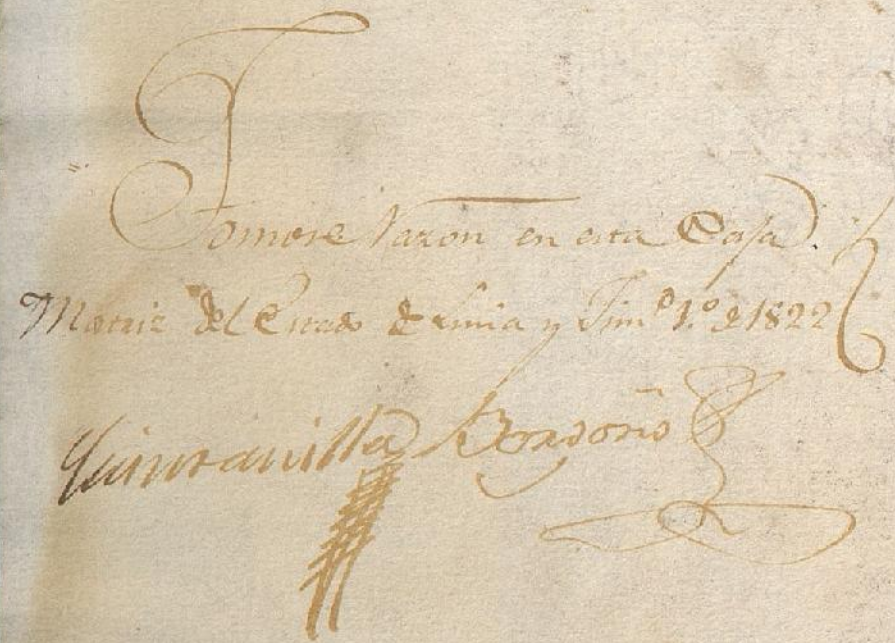 Tomose Razon en esta Casa
Matriz del Estado de Lima y Jun.º 1.º de 1822
Quintanilla Bordorio